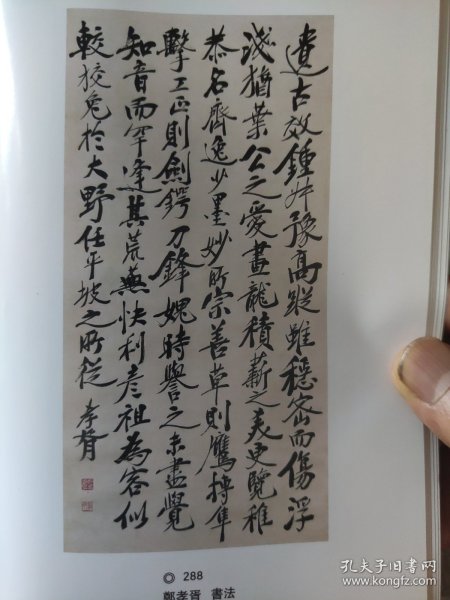 遵古效鍾叔豫高蹤雖穩密而傷浮
淺猶葉公之愛畫龍積薪之美更覽稚
恭名齊逸少墨妙所宗善草則鷹搏隼
擊工正則劍鍔刀鋒媿時譽之未盡覺
知音而罕逢其荒蕪快利彥祖為容似
較狡兔於大野任平坡之所從 孝胥
◎ 288
鄭孝胥 書法
孔夫子旧书网